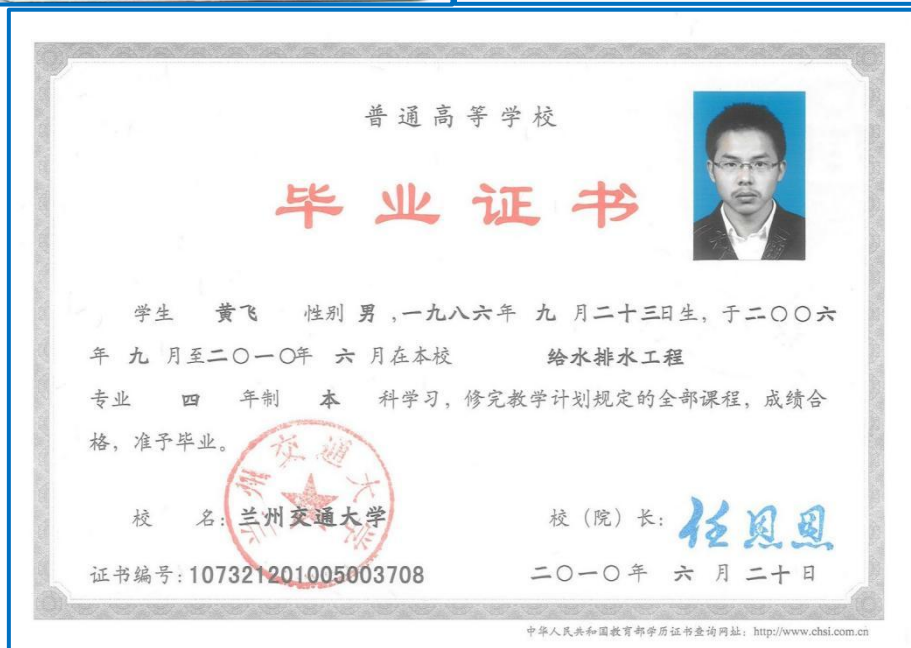 普通高等学校
毕业证书
学生 黄飞 性别 男 ,一九八六年 九 月二十三日生, 于二〇〇六
年 九 月至二〇一〇年 六 月在本校 给水排水工程
专业 四 年制 本 科学习, 修完教学计划规定的全部课程, 成绩合
格, 准予毕业。
兰州交通大学
校 名: 兰州交通大学 校 (院) 长: 任恩恩
证书编号: 107321201005003708 二〇一〇年 六 月 二十日
中华人民共和国教育部学历证书查询网址: http://www.chsi.com.cn